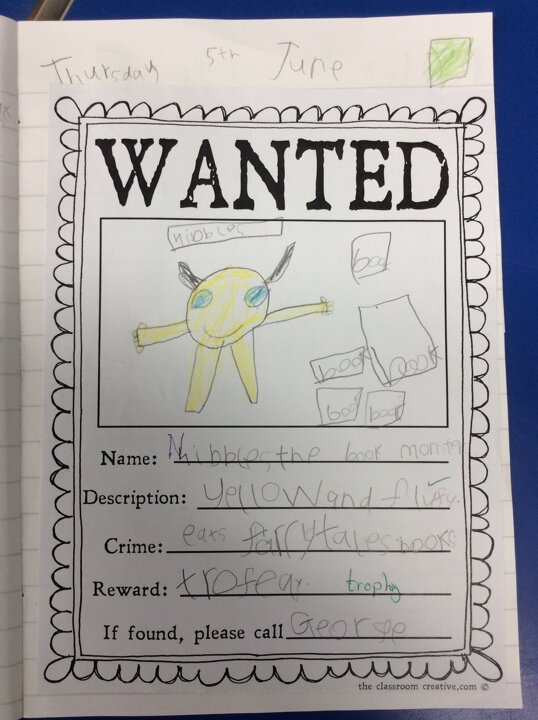 Thursday 5th June
WANTED
nibbles
book
book
book
book
book
Name: Nibbles the book monster
Description: yellow and flufy.
Crime: eats fairytales books
Reward: trofeay. trophy
If found, please call George
the classroom creative.com ©